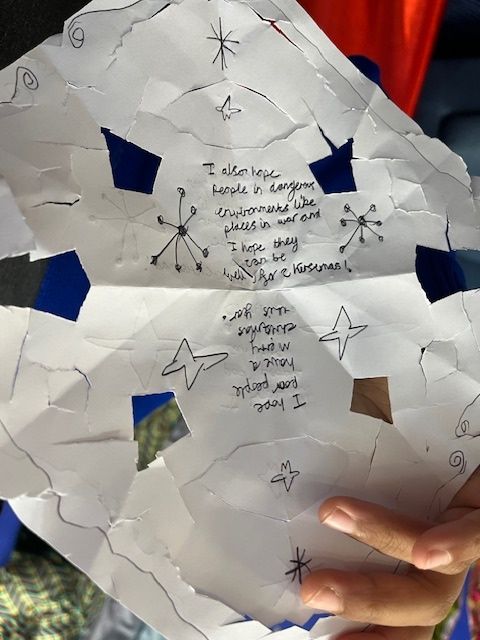 I also hope
people in dangerous
environments like
places in war and
I hope they
can be
well for
I hope
poor people
have a
merry
christmas
this year.